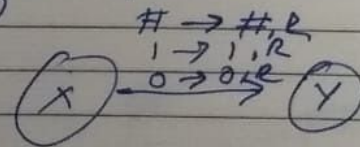 # → #,R
1 → 1,R
0 → 0,R
X
Y